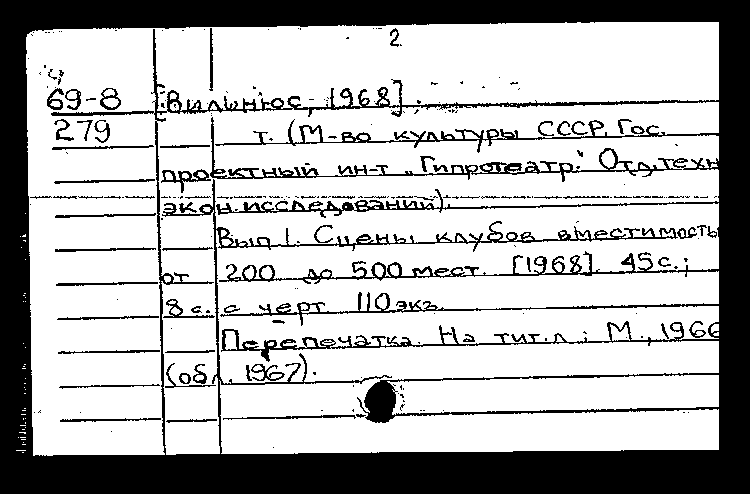 2
69-8 [Вильнюс, 1968].
279 т. (М-во культуры СССР. Гос.
проектный ин-т „Гипротеатр." Отд. техн
экон. исследований).
Вып 1. Сцены клубов вместимость
от 200 до 500 мест. [1968]. 45 с.;
8 с. с черт. 110 экз.
Перепечатка. На тит. л.: М., 1966
(обл. 1967).